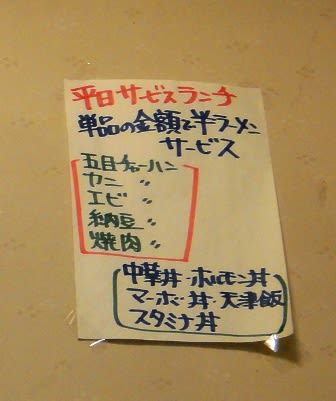 平日サービスランチ
単品の金額で半ラーメン
サービス
五目チャーハン
カニ 〃
エビ 〃
納豆 〃
焼肉 〃
中華丼・ホルモン丼
マーボー丼・天津飯
スタミナ丼